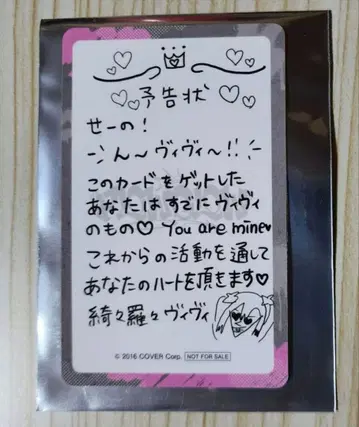 予告状
せーの！
ん〜ヴィヴィ〜!!
このカードをゲットした
あなたはすでにヴィヴィ
のもの♡ You are mine♥
これからの活動を通して
あなたのハートを頂きます♡
綺々羅々ヴィヴィ
© 2016 COVER Corp. NOT FOR SALE